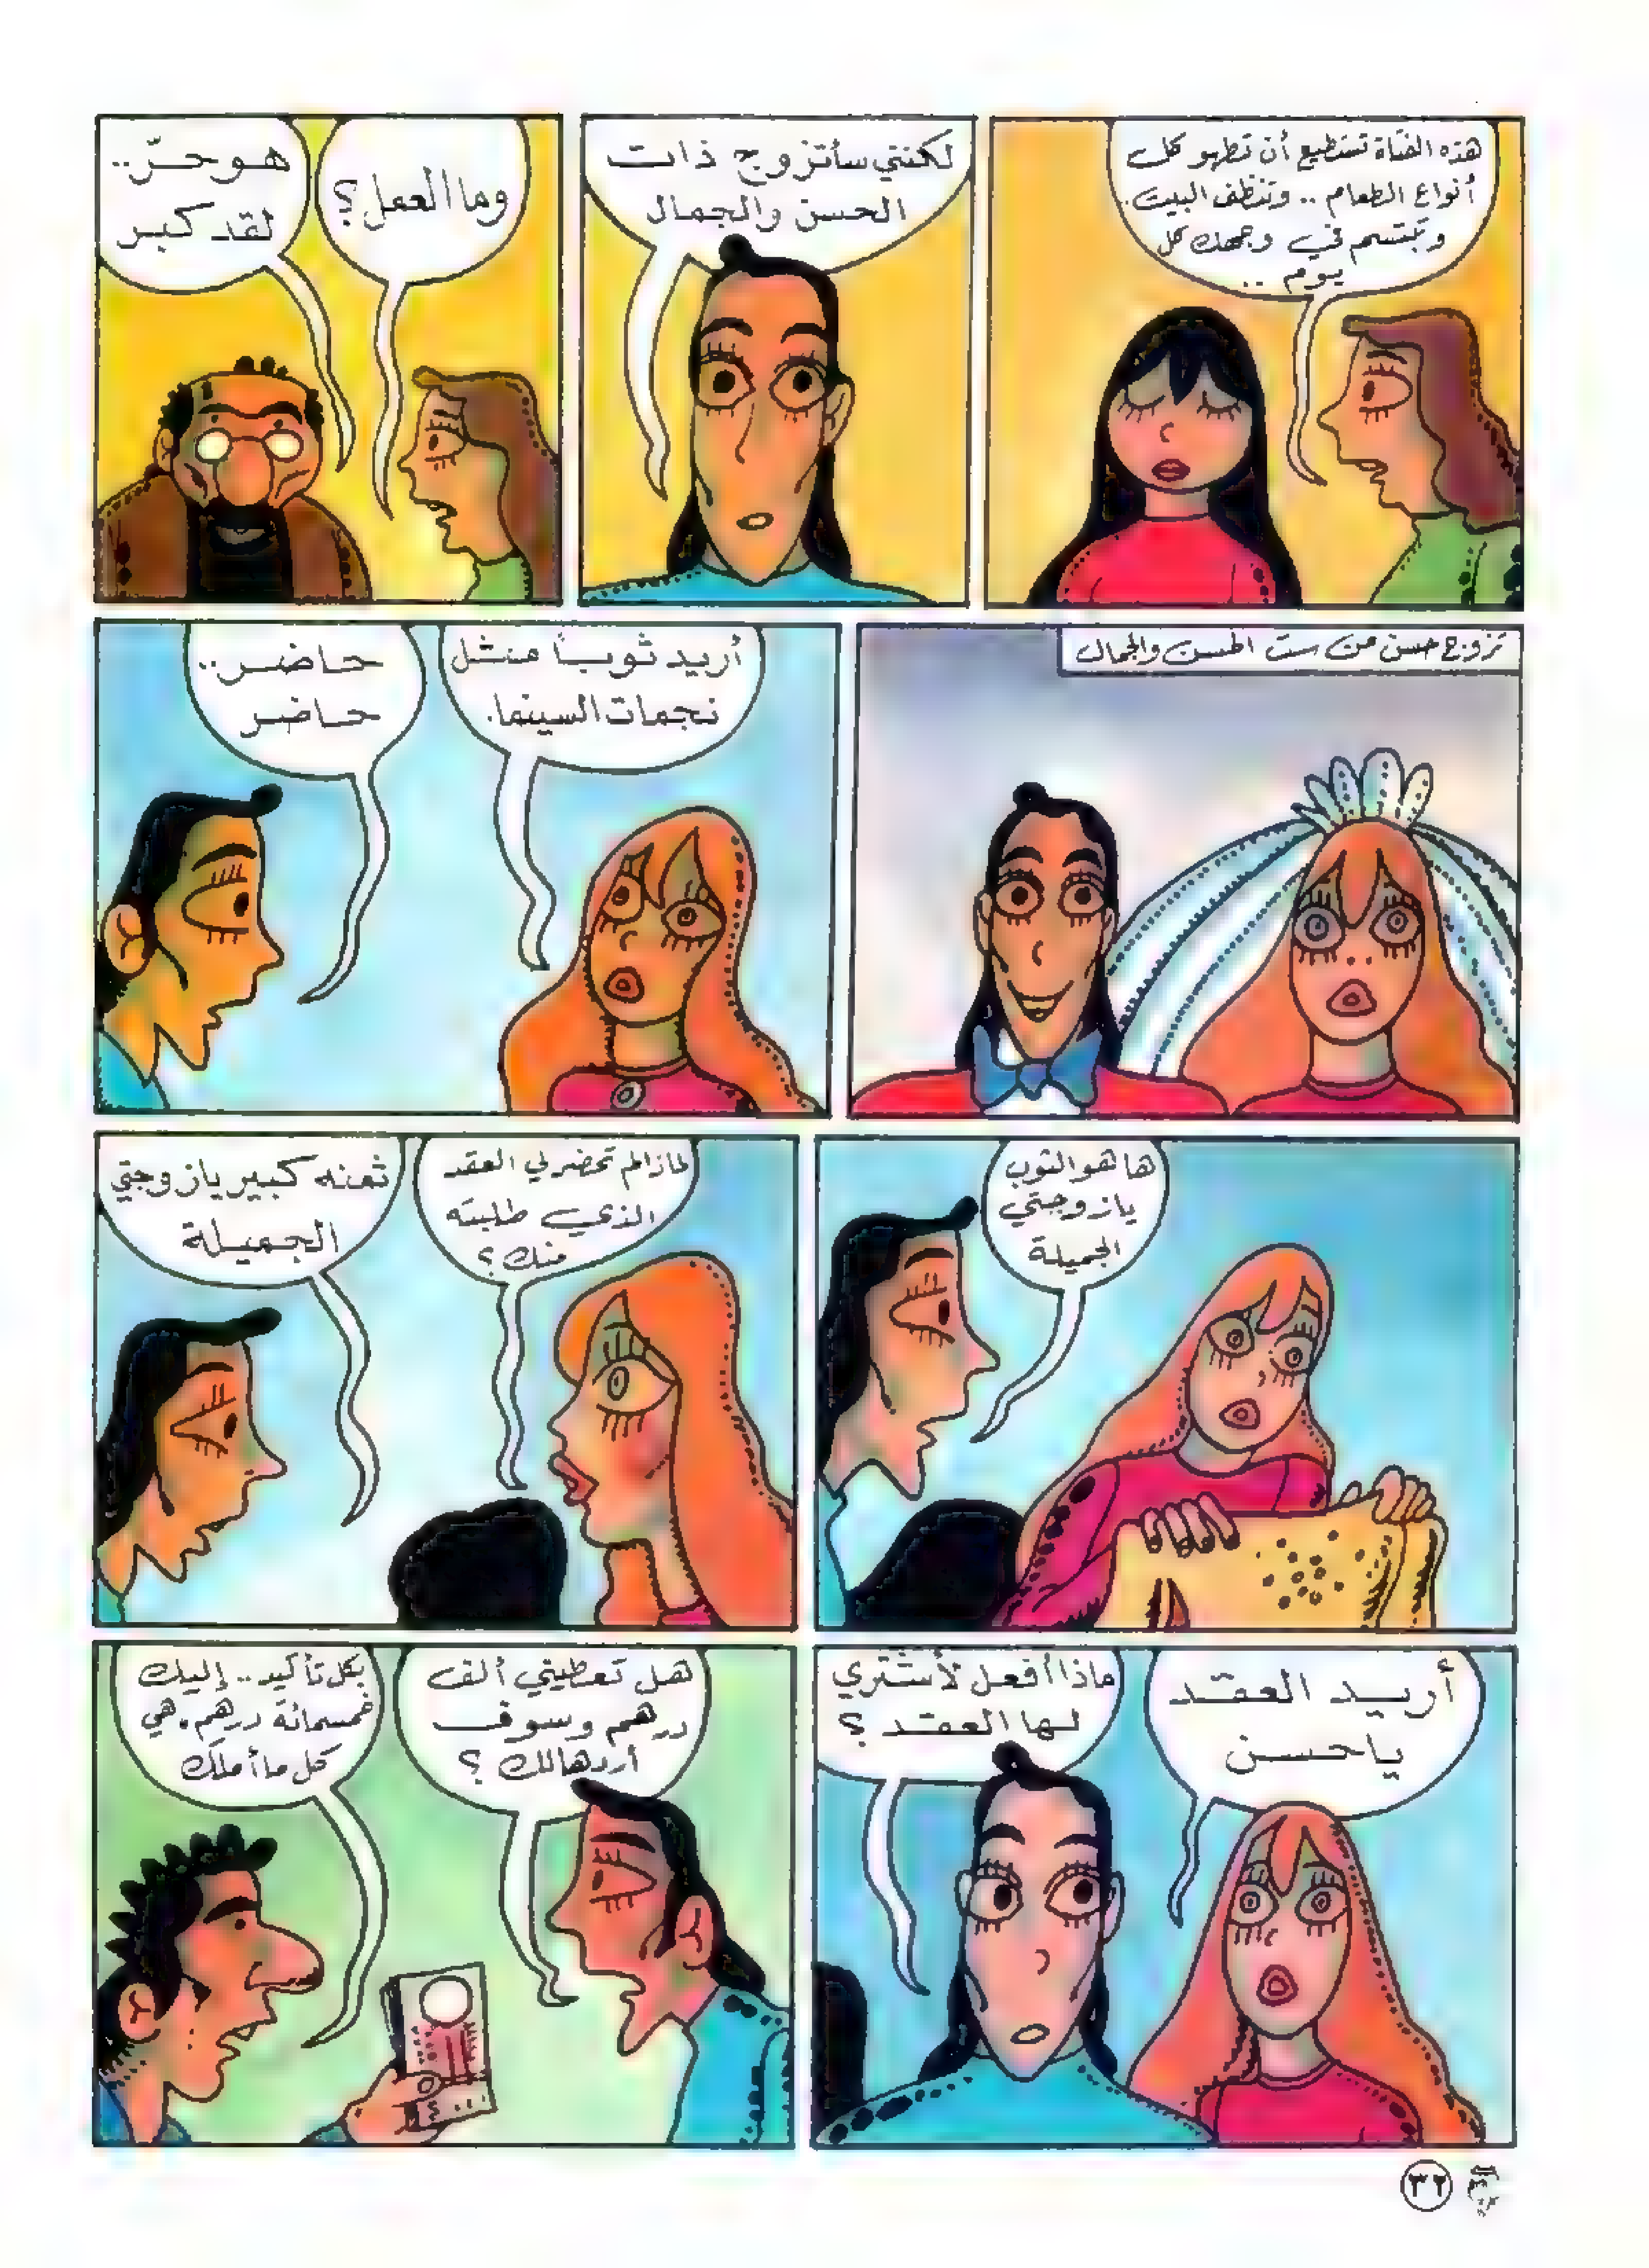 هذه الفتاة تستطيع أن تطهو كل
أنواع الطعام .. وتنظف البيت.
وتبتسم في وجهك كل
يوم ..
لكنني سأتزوج ذات
الحسن والجمال
وما العمل؟
هو حرّ..
لقد كبر
تزوج حسن من ست الحسن والجمال
أريد ثوباً مثل
نجمات السينما.
حاضر..
حاضر
ها هو الثوب
يا زوجتي
الجميلة
لماذا لم تحضر لي العقد
الذي طلبته
منك؟
ثمنه كبير يا زوجتي
الجميلة
أريد العقد
يا حسن
ماذا أفعل لأشتري
لها العقد؟
هل تعطيني ألف
درهم وسوف
أردها لك؟
بكل تأكيد.. إليك
خمسمائة درهم، هي
كل ما أملك
٣٢